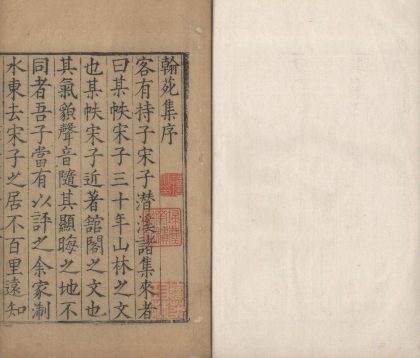 翰苑集序
客有持子宋子潛溪諸集來者
曰某帙宋子三十年山林之文
也某帙宋子近著館閣之文也
其氣貌聲音隨其顯晦之地不
同者吾子當有以評之余家淛
水東去宋子之居不百里遠知